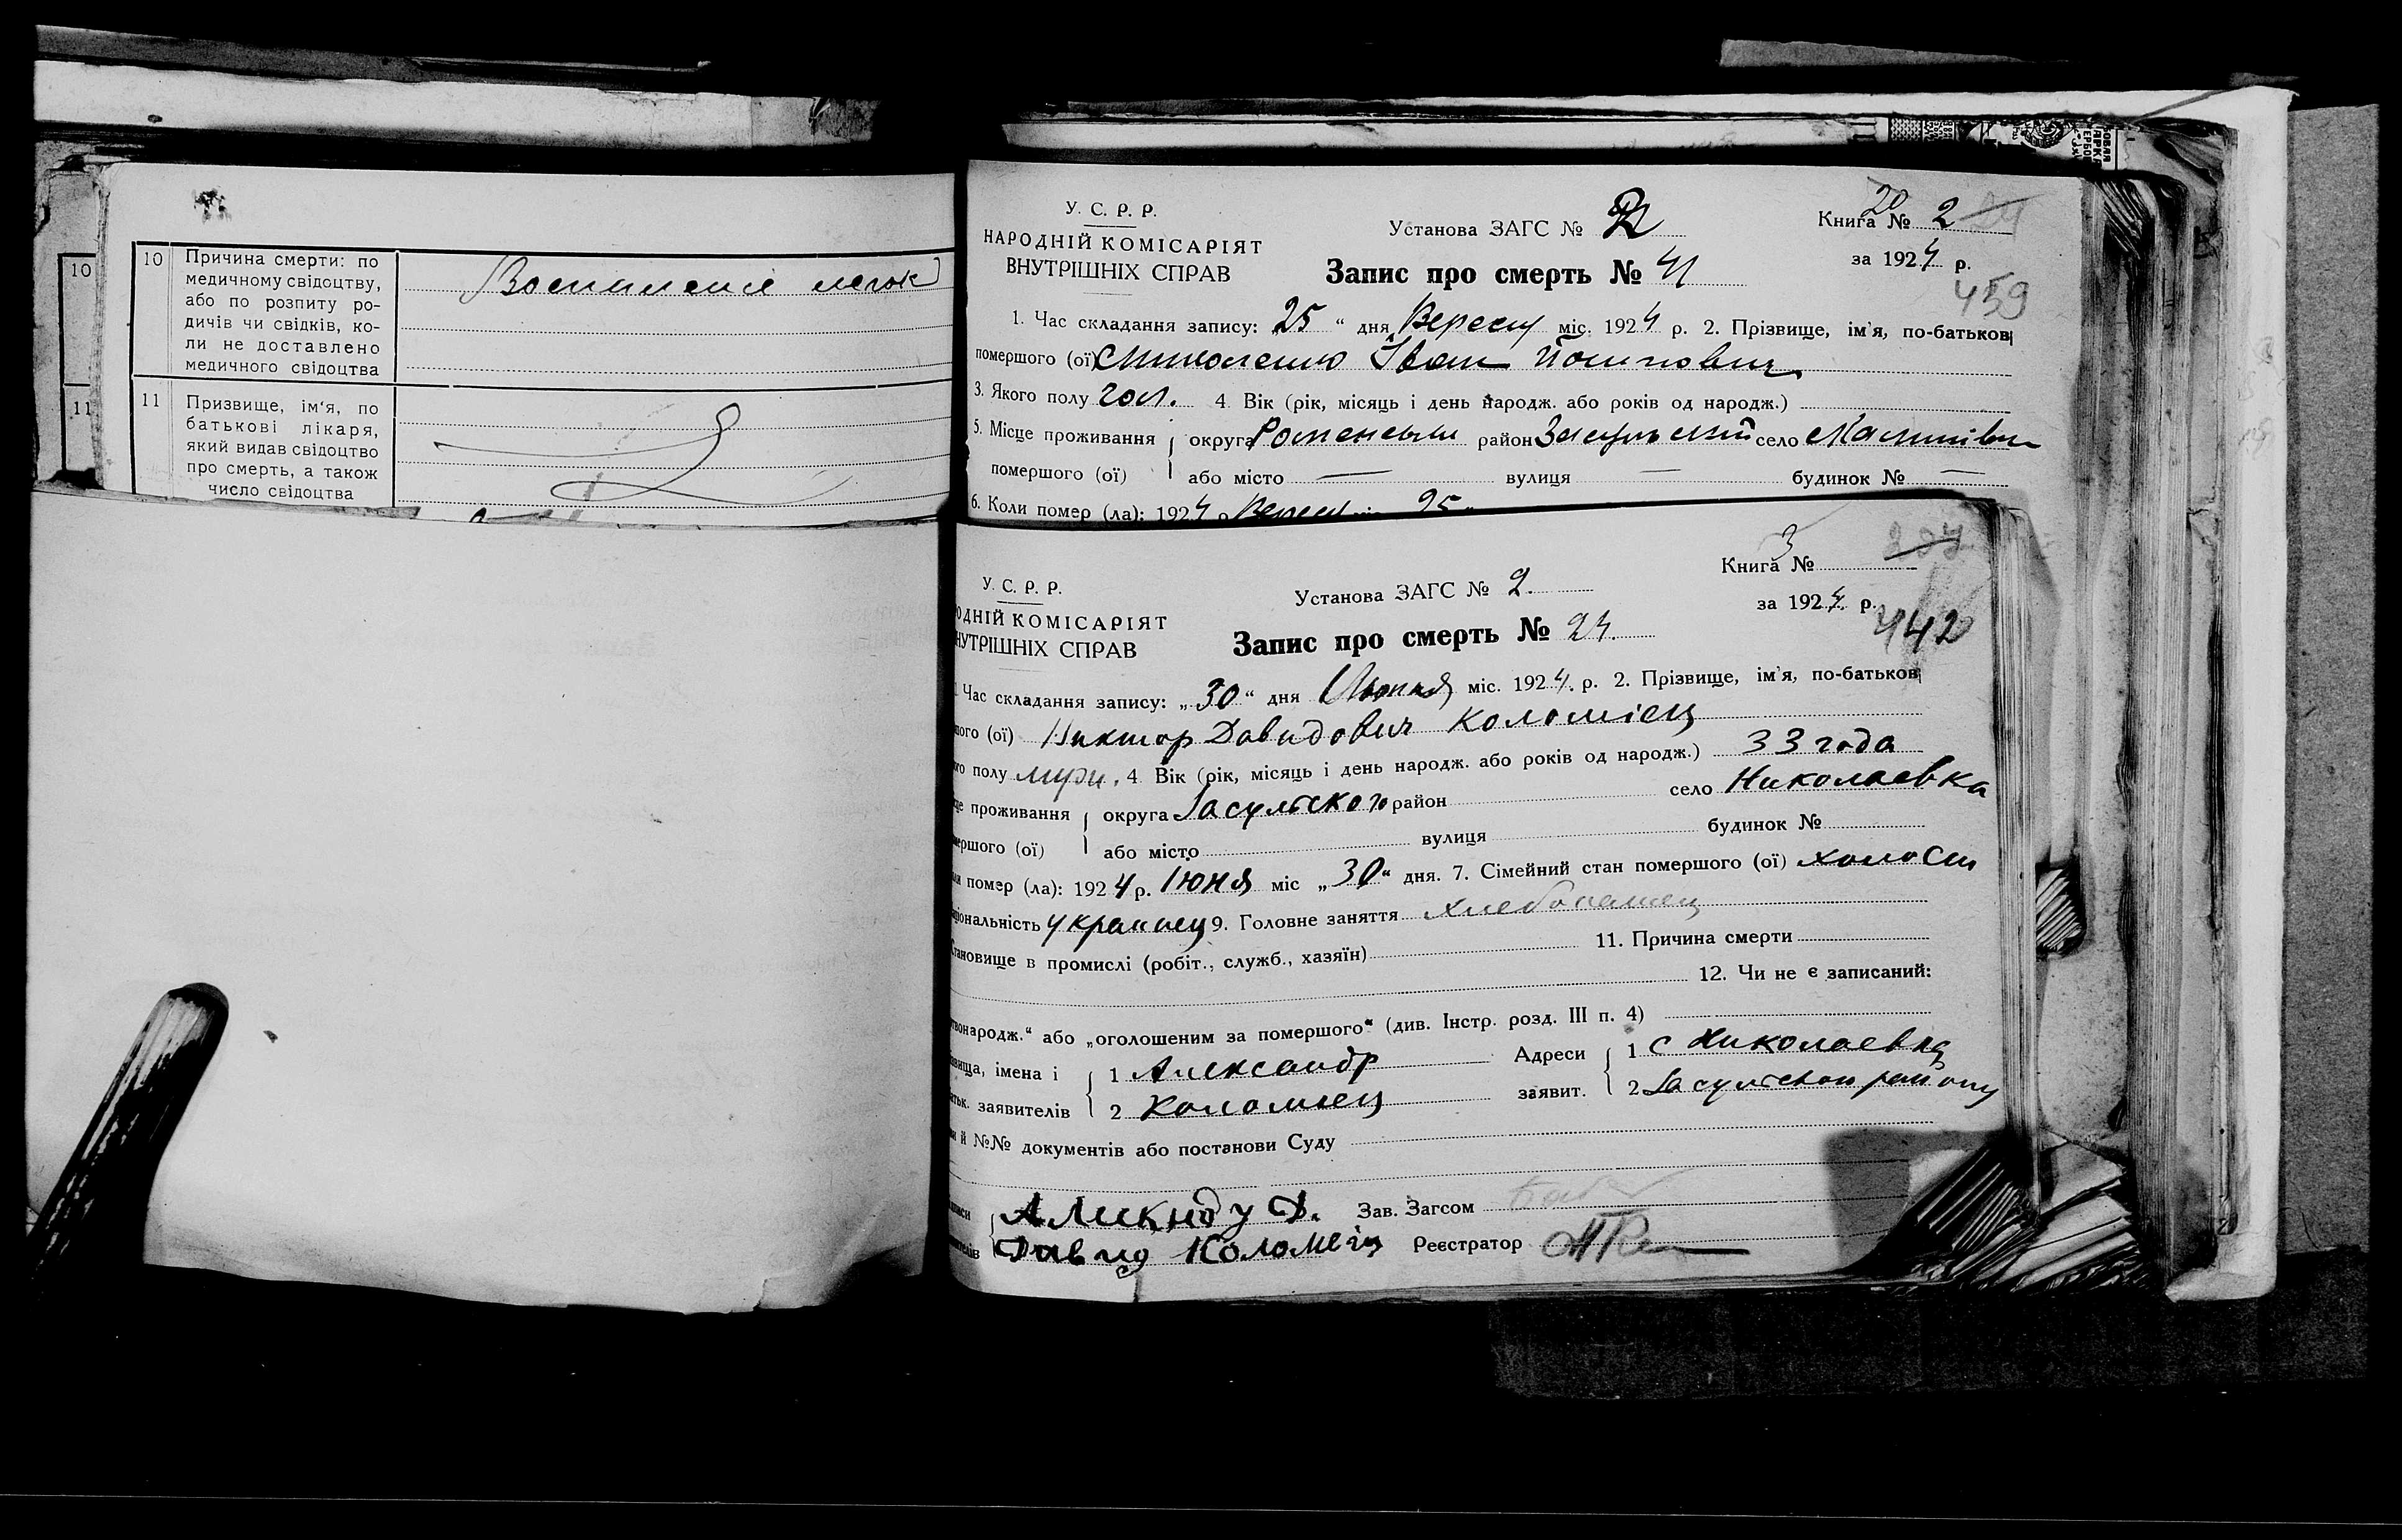 10
11
10 Причина смерти: по
медичному свідоцтву,
або по розпиту ро-
дичів чи свідків, ко-
ли не доставлено
медичного свідоцтва
Воспаление легк
11 Призвище, ім'я, по
батькові лікаря,
який видав свідоцтво
про смерть, а також
число свідоцтва
У. С. Р. Р.
НАРОДНІЙ КОМІСАРІЯТ
ВНУТРІШНІХ СПРАВ
Установа ЗАГС № 2
Книга № 20 2
за 1924 р.
459
Запис про смерть № 41
1. Час складання запису: 25 “ дня Вересня міс. 1924 р. 2. Прізвище, ім'я, по-батькові
помершого (ої) Миколенко Іван Йосипович
3. Якого полу чол. 4 Вік (рік, місяць і день народж. або років од народж.)
5. Місце проживання округа Роменський район Засульський село
помершого (ої) або місто — вулиця — будинок № —
6. Коли помер (ла): 1924 р Вересня міс 25
У. С. Р. Р.
ОДНІЙ КОМІСАРІЯТ
НУТРІШНІХ СПРАВ
Установа ЗАГС № 2.
Книга № 3
за 1924. р.
442
Запис про смерть № 24.
1. Час складання запису: „30“ дня Июня міс. 1924. р. 2. Прізвище, ім'я, по-батькові
ого (ої) Виктор Давидович Коломіец
го полу муж. 4 Вік (рік, місяць і день народж. або років од народж.) 33 года
це проживання округа Засульского район село Николаевка
мершого (ої) або місто вулиця будинок №
ли помер (ла): 1924 р. Июня міс „30“ дня. 7. Сімейний стан помершого (ої) холост
ціональність украинец 9. Головне заняття хлебопашец
тановище в промислі (робіт., служб., хазяїн) 11. Причина смерти
12. Чи не є записаний:
твонародж.“ або „оголошеним за помершого“ (див. Інстр. розд. III п. 4)
звища, імена і 1 Александр Адреси 1 с Николаевка
атьк. заявителів 2 Коломиец заявит. 2 Засульскои району
ви й №№ документів або постанови Суду
дписи Д. Зав. Загсом
вителів Давид Коломеіц Реєстратор